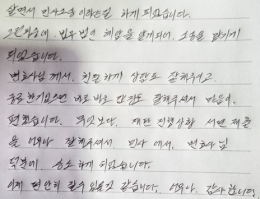 살면서 민사소송이라는걸 하게 되었습니다.
그런와중에 법무법인 해람을 알게되어 소송을 맡기게
되었습니다.
변호사님께서, 친절하게 상담도 잘해주시고
궁금한게있으면 바로바로 답변도 잘해주셔서 마음이
편했습니다. 무엇보다, 재판 진행상황, 서면 제출
을 너무나 잘해주셔서, 민사에서, 변호사님
덕분에 승소하게 되었습니다.
이제 편안히 잘수 있을것 같습니다. 너무나 감사합니다.